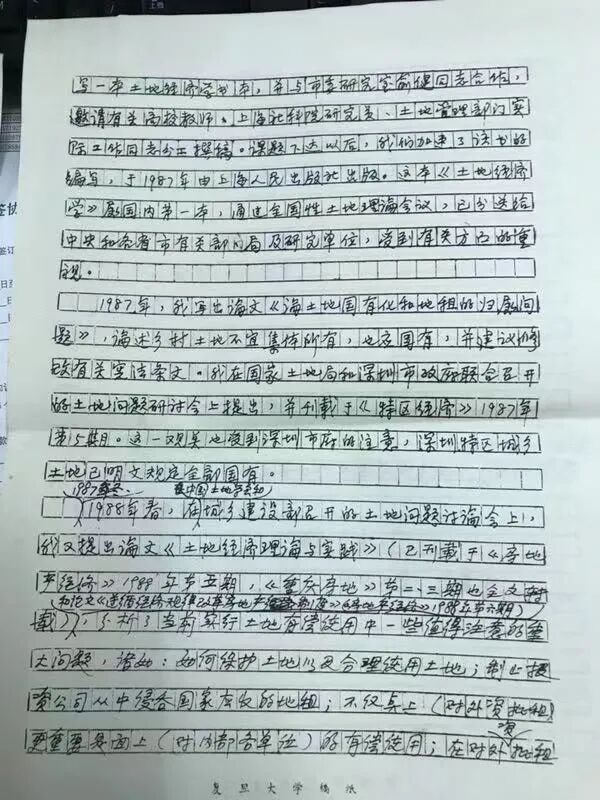 写一本土地经济学书本，并与市委研究室俞健同志合作，
邀请有关高校教师、上海社科院研究员、土地管理部门实
际工作同志分工撰稿。课题下达以后，我们加速了该书的
编写，于1987年由上海人民出版社出版。这本《土地经济
学》属国内第一本，通过全国性土地理论会议，已分送给
中央和各省市有关部门局及研究单位，受到有关方面的重
视。
1987年，我写出论文《论土地国有化和地租的归属问
题》，论述乡村土地不宜集体所有，也应国有，并建议修
改有关宪法条文。我在国家土地局和深圳市政府联合召开
的土地问题研讨会上提出，并刊载于《特区经济》1987年
第5期。这一观点也受到深圳市府的注意，深圳特区城乡
土地已明文规定全部国有。
1987年冬、在中国土地学会和
1988年春，在城乡建设部召开的土地问题讨论会上，
我又提出论文《土地经济理论与实践》（已刊载于《房地
产经济》1988年第五期，《重庆房地》第二、三期也全文转
和论文《遵循经济规律改革房地产》《房地产经济》1988年第期）
载），分析了当前实行土地有偿使用中一些值得注意的重
大问题，诸如：如何保护土地以及合理使用土地；制止投
资公司从中侵吞国家应收的地租；不仅点上（对外资批租）
资
更重要是面上（对内部各单位）的有偿使用；在对外批租
复旦大学稿纸